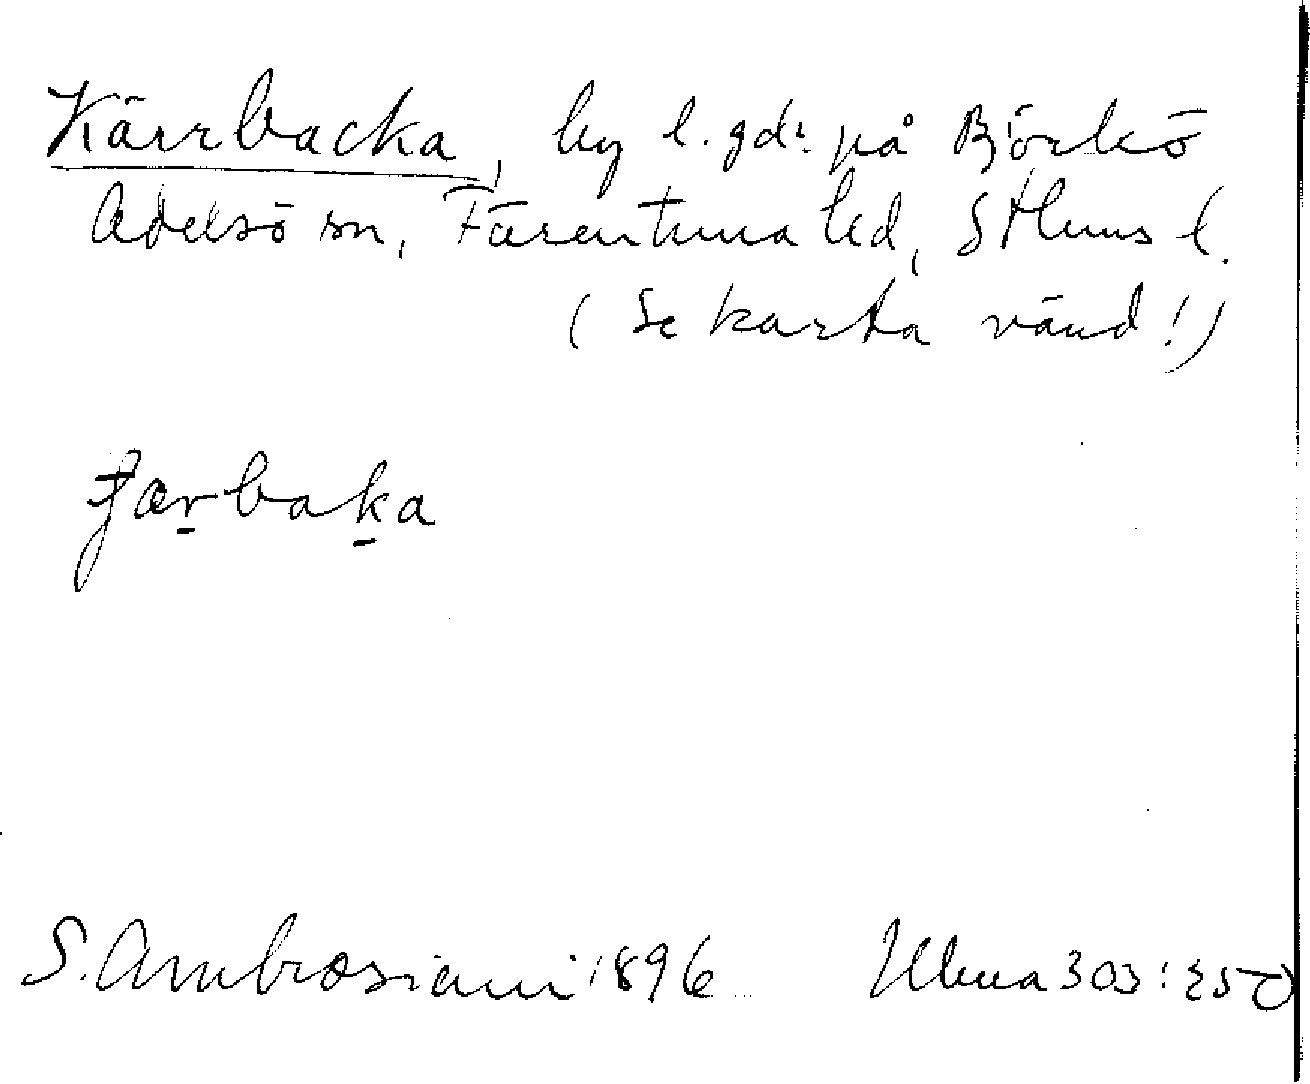 Kärrbacka, by l. gd: på Björkö
Adelsö sn, Färentuna hd, Sthlms l.
(Se karta vänd!)
ꞓærbaka
S. Ambrosiani 1896 Ulma 303: